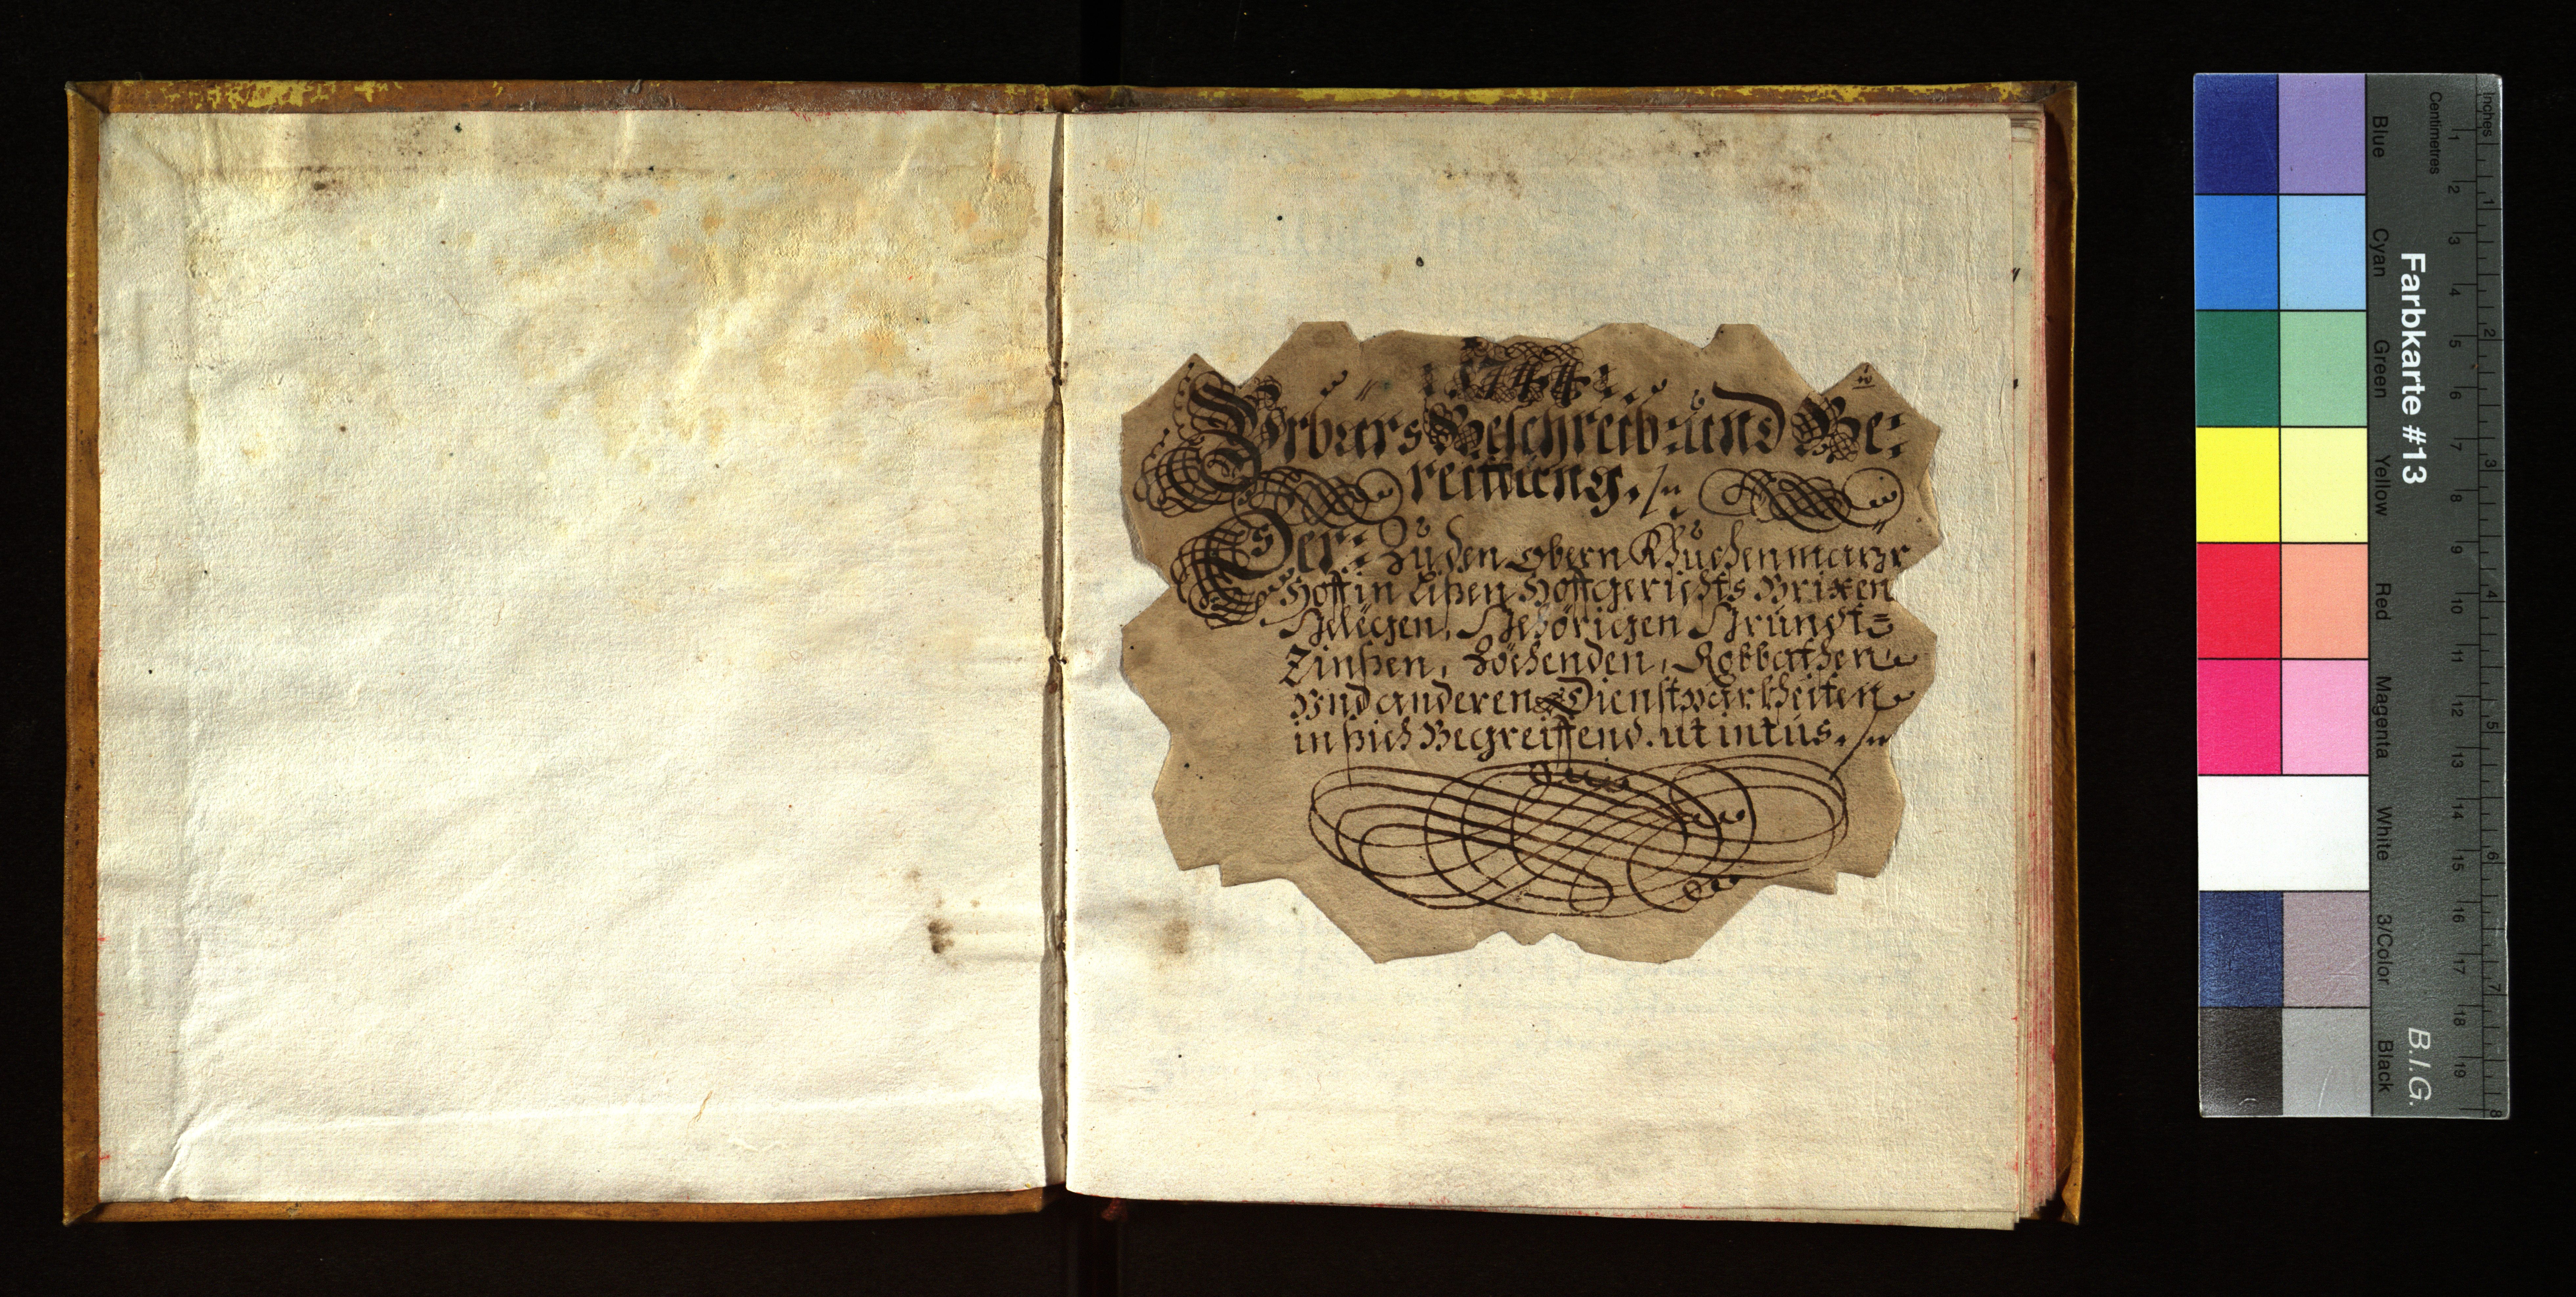 1744
Urbars Beschreib: und Be:
reittung.
Der: Zu den obern Khuchenmayr
Hoff in Lißen Hoffgerichts Brixen
Gelegen, Gehörigen Grundt=
Zinßen, Zöchenden, Robbathen
Und anderen Dienstparkheiten
in sich Begreiffend. ut intus.
Farbkarte #13
B.I.G.
Blue Cyan Green Yellow Red Magenta White 3/Color Black
Centimetres 1 2 3 4 5 6 7 8 9 10 11 12 13 14 15 16 17 18 19
Inches 1 2 3 4 5 6 7 8